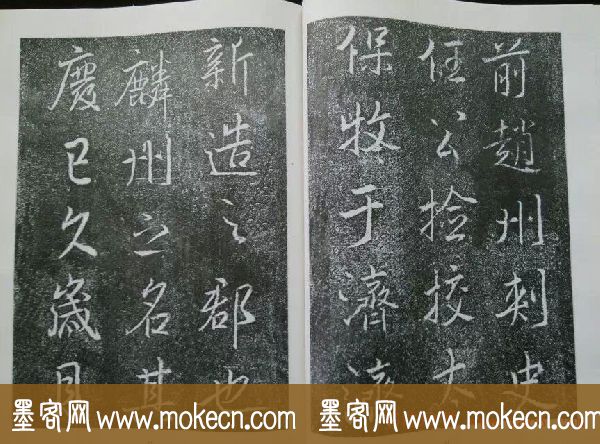 前趙州刺史
任公撿挍大
保牧于濟濟
新造之郡也
麟州之名其
慶已久歲月
墨客网 www.mokecn.com
墨客网 www.mokecn.com